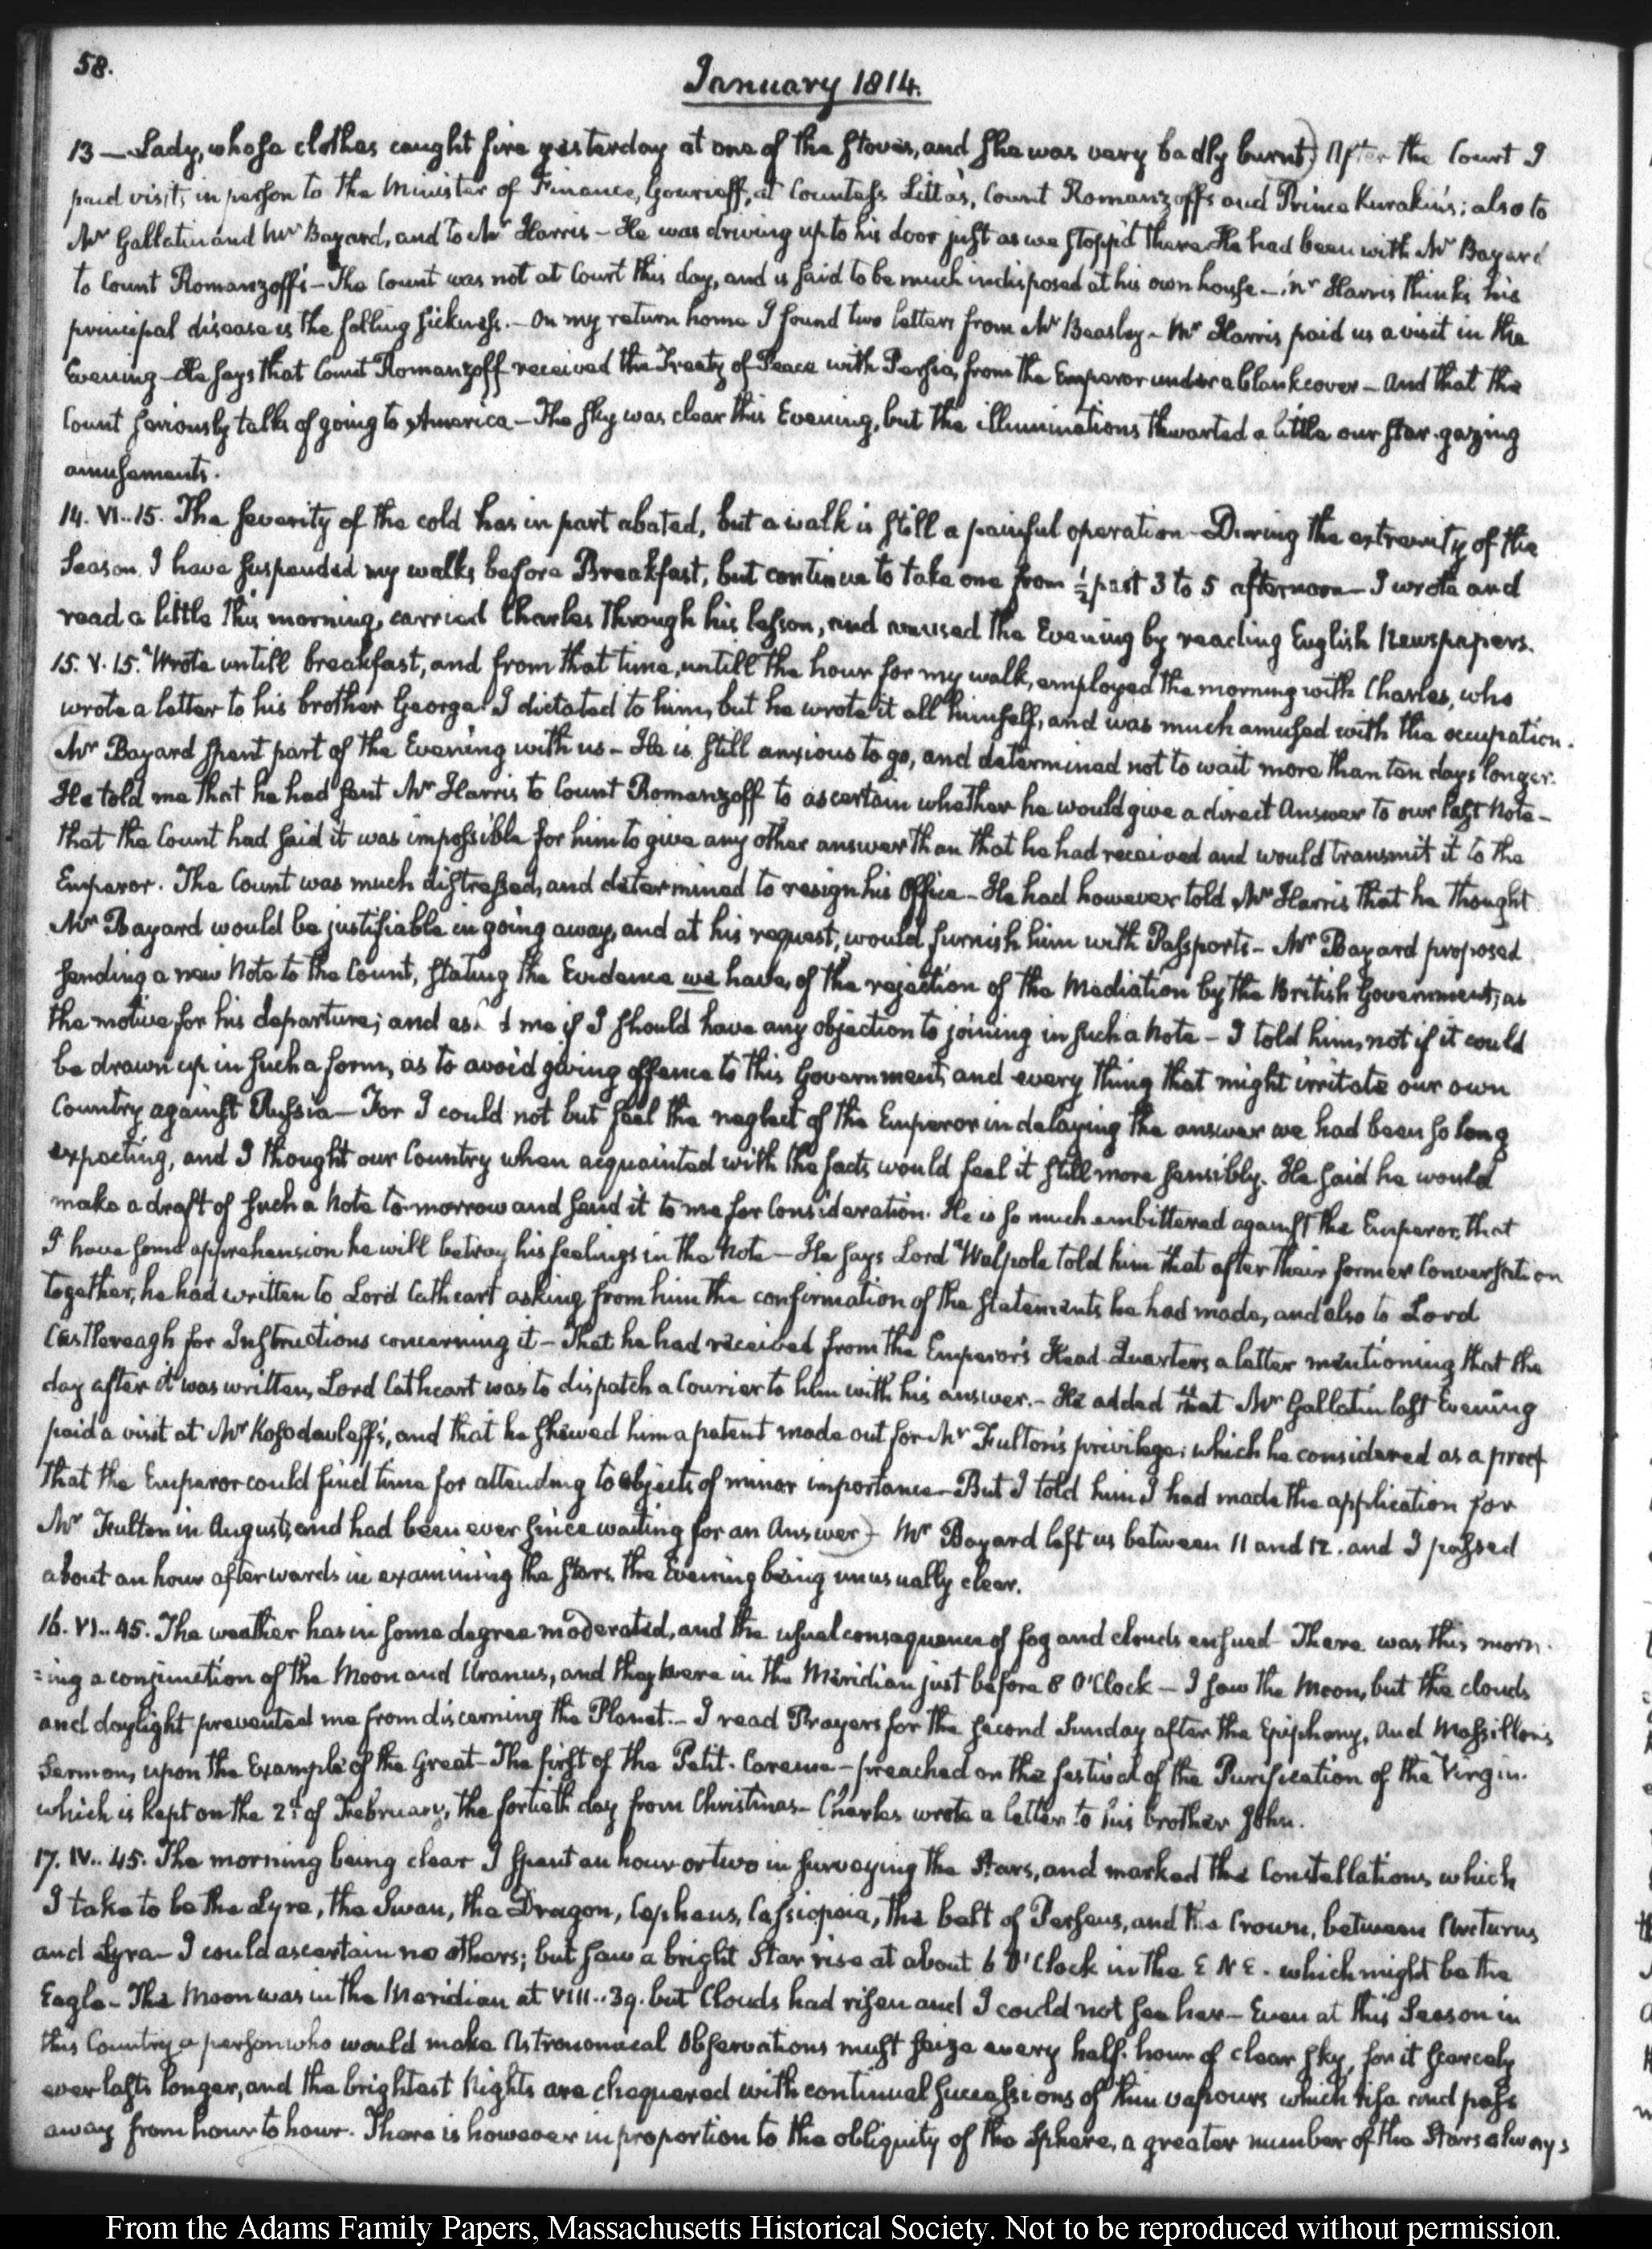 58.
January 1814.
13 — Lady, whose clothes caught fire yesterday at one of the stoves, and she was very badly burnt) After the Court I
paid visits in person to the Minister of Finance, Gourieff, at Countess Litta's, Count Romanzoff's and Prince Kurakin's; also to
Mr Gallatin and Mr Bayard, and to Mr Harris — He was driving up to his door just as we stopp'd there. He had been with Mr Bayard
to Count Romanzoff's — The Count was not at Court this day, and is said to be much indisposed at his own house — Mr Harris thinks his
principal disease is the falling sickness. — On my return home I found two letters from Mr Beasley — Mr Harris paid us a visit in the
Evening — He says that Count Romanzoff received the Treaty of Peace with Persia, from the Emperor under a blank cover — and that the
Count seriously talks of going to America — The sky was clear this Evening, but the illuminations thwarted a little our star-gazing
amusements.
14. VI..15. The severity of the cold has in part abated, but a walk is still a painful operation — During the extremity of the
Season I have suspended my walks before Breakfast, but continue to take one from ½ past 3 to 5 afternoon — I wrote and
read a little this morning, carried Charles through his lesson, and amused the Evening by reading English Newspapers.
15. V. 15. Wrote untill breakfast, and from that time, untill the hour for my walk, employed the morning with Charles, who
wrote a letter to his brother George. I dictated to him, but he wrote it all himself, and was much amused with the occupation.
Mr Bayard spent part of the Evening with us — He is still anxious to go, and determined not to wait more than ten days longer.
He told me that he had sent Mr Harris to Count Romanzoff to ascertain whether he would give a direct Answer to our last Note —
that the Count had said it was impossible for him to give any other answer than that he had received and would transmit it to the
Emperor. The Count was much distressed, and determined to resign his Office — He had however told Mr Harris that he thought
Mr Bayard would be justifiable in going away, and at his request, would furnish him with Passports — Mr Bayard proposed
sending a new Note to the Count, stating the Evidence we have, of the rejection of the Mediation by the British Government; as
the motive for his departure; and ask'd me if I should have any objection to joining in such a Note — I told him, not if it could
be drawn up in such a form, as to avoid giving offence to this Government, and every thing that might irritate our own
Country against Russia — For I could not but feel the neglect of the Emperor in delaying the answer we had been so long
expecting, and I thought our Country when acquainted with the facts would feel it still more sensibly. He said he would
make a draft of such a Note to-morrow and send it to me for Consideration. He is so much embittered against the Emperor, that
I have some apprehension he will betray his feelings in the Note — He says Lord Walpole told him that after their former Conversation
together, he had written to Lord Cathcart asking from him the confirmation of the statements he had made, and also to Lord
Castlereagh for Instructions concerning it — That he had received from the Emperor's Head-Quarters a letter mentioning that the
day after it was written, Lord Cathcart was to dispatch a Courier to him with his answer. — He added that Mr Gallatin last Evening
paid a visit at Mr Kosodavleff's, and that he shewed him a patent made out for Mr Fulton's privilege: which he considered as a proof
that the Emperor could find time for attending to objects of minor importance — But I told him I had made the application for
Mr Fulton in August, and had been ever since waiting for an Answer) — Mr Bayard left us between 11 and 12. and I passed
about an hour afterwards in examining the stars. the Evening being unusually clear.
16. VI..45. The weather has in some degree moderated, and the usual consequence of fog and clouds ensued — There was this morn-
=ing a conjunction of the Moon and Uranus, and they were in the Meridian just before 8 O'Clock — I saw the Moon, but the clouds
and daylight prevented me from discerning the Planet. — I read Prayers for the second Sunday after the Epiphany, and Massillon's
Sermon, upon the Example of the Great — The first of the Petit-Careme — preached on the festival of the Purification of the Virgin.
which is kept on the 2d of February, the fortieth day from Christmas — Charles wrote a letter to his brother John.
17. IV..45. The morning being clear I spent an hour or two in surveying the Stars, and marked the Constellations, which
I take to be the Lyre, the Swan, the Dragon, Cepheus, Cassiopeia, the belt of Perseus, and the Crown, between Arcturus
and Lyra — I could ascertain no others; but saw a bright Star rise at about 6 O'Clock in the E N E. which might be the
Eagle — The Moon was in the Meridian at VIII..39. but Clouds had risen and I could not see her — Even at this Season in
this Country a person who would make Astronomical Observations must seize every half-hour of clear sky, for it scarcely
ever lasts longer, and the brightest Nights are chequered with continual successions of thin vapours which rise and pass
away from hour to hour. There is however in proportion to the obliquity of the Sphere, a greater number of the Stars always
From the Adams Family Papers, Massachusetts Historical Society. Not to be reproduced without permission.